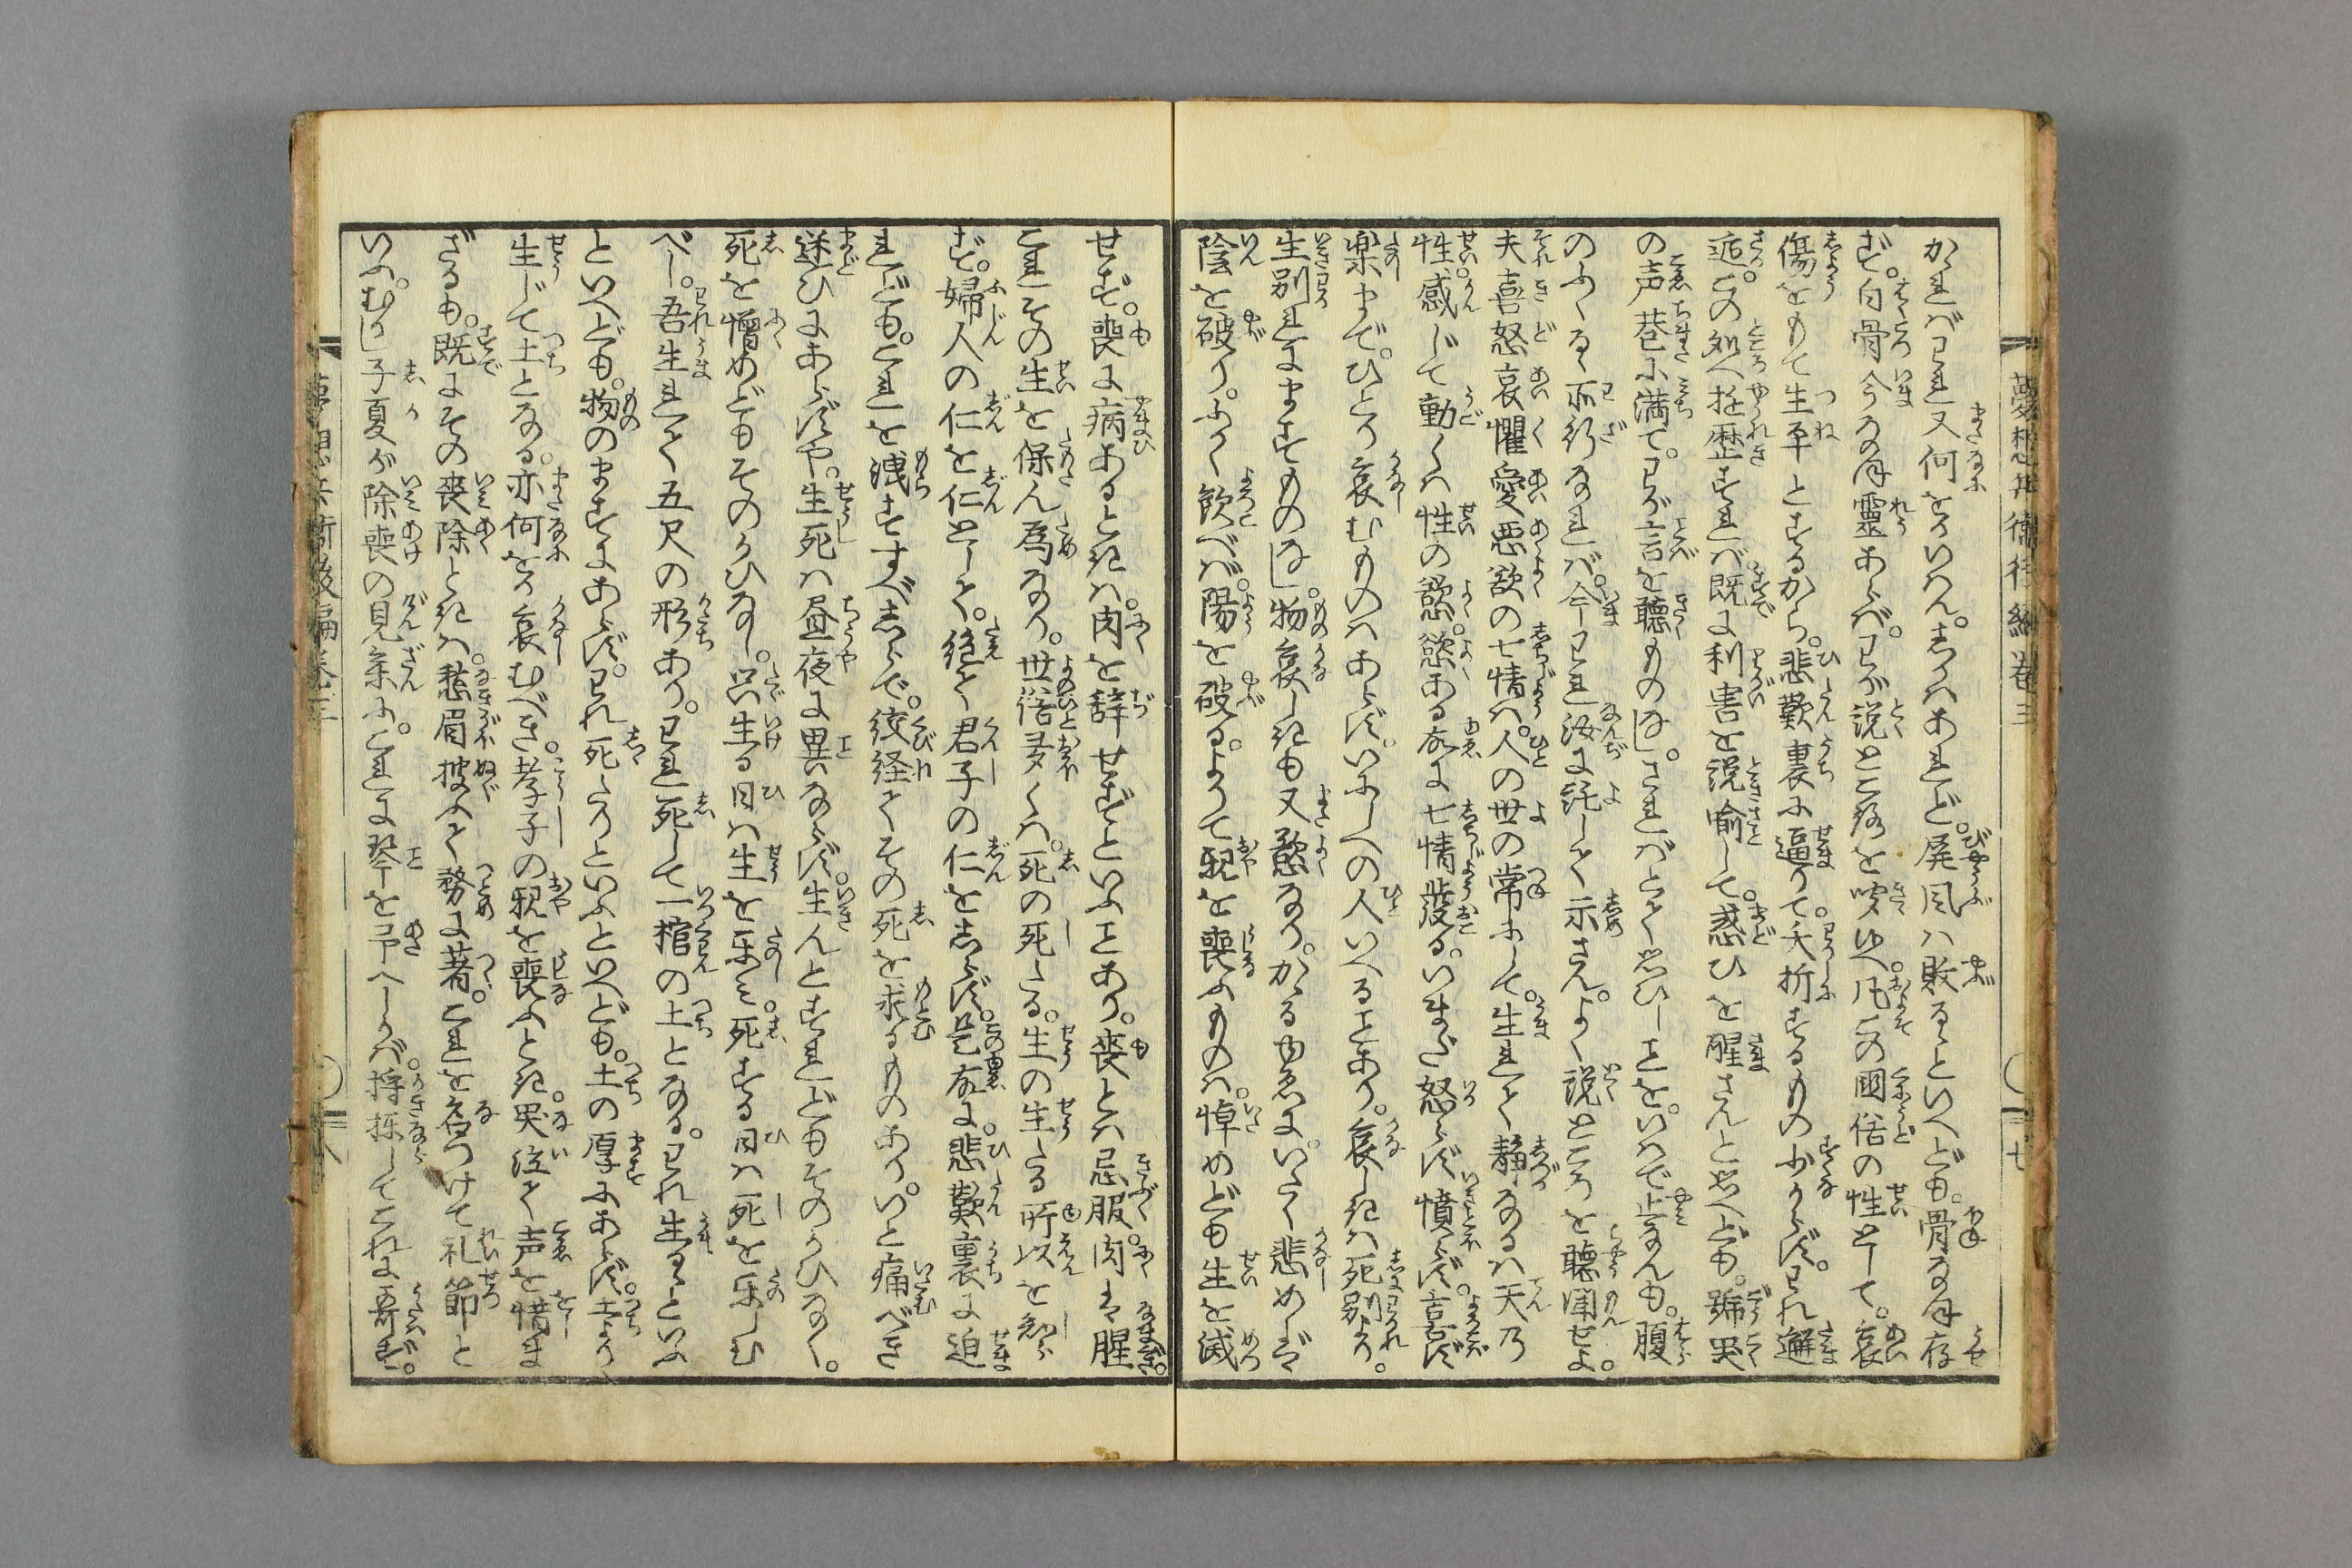 夢想兵衛後編巻三
七
かゝればわれ又何をかいはん。しかはあれど。屏風は敗るといへども。骨なほ存
ず。白骨今なほ霊あらば。わが説ところを聴ゆへ。凡この国俗の性として。哀
傷をもて生平とするから。悲歎裏に逼りて。夭折するもの少からず。われ邂
逅この処へ遊歴すれば。既に利害を説喩して。惑ひを醒さんと思へども。號哭
の声巷に満て。わが言を聴ものなし。さればとく思ひしことを。いはで止なんも。腹
のふくるゝ所行なれば。今われ汝に託して示さん。よく説ところを聴聞せよ。
夫喜怒哀懼愛悪欲の七情は。人の世の常にして。生れて静なるは天乃
性。感じて動くは性の慾。慾ある故に七情發る。いまだ怒らず憤らず。喜ばず
楽まで。ひとり哀むものはあらず。いにしへの人いへることあり。哀しきは死別より。
生別れにますものなし。物哀しきも又慾なり。かゝるゆゑに。いたく悲めば
陰を破り。ふかく飲べば。陽を破る。よりて親を喪ふものは。悼めども生を滅
せず。喪に病あるときは。肉を辞せずといふことあり。喪とは忌服。肉は腥。
これその生を保ん為なり。世俗多くは。死の死たる。生の生たる所以を知ら
ず。婦人の仁を仁として。絶て君子の仁をしらず。是故に。悲歎裏に迫
れども。これを洩すすべしらで。絞経てその死を求るものあり。いと痛べき
迷ひにあらずや。生死は昼夜に異ならず。生んとすれどもそのかひなく。
死を憎めどもそのかひなし。只生る日は生を楽み。死する日は死を楽しむ
べし。吾生れて五尺の形あり。われ死して一棺の土となる。われ生るといふ
といへども。物のますにあらず。われ死たりといふといへども。土の厚にあらず。土より
生じて土となる。亦何をか哀むべき。孝子の親を喪ふとき。哭泣て声を惜ま
ざるも。既にその喪除ときは。愁眉披ふて務に著。これを名つけて礼節と
いふ。むかし子夏が除喪の見参に。これに琴を予へしかば。捋抹してこれに吾ず。